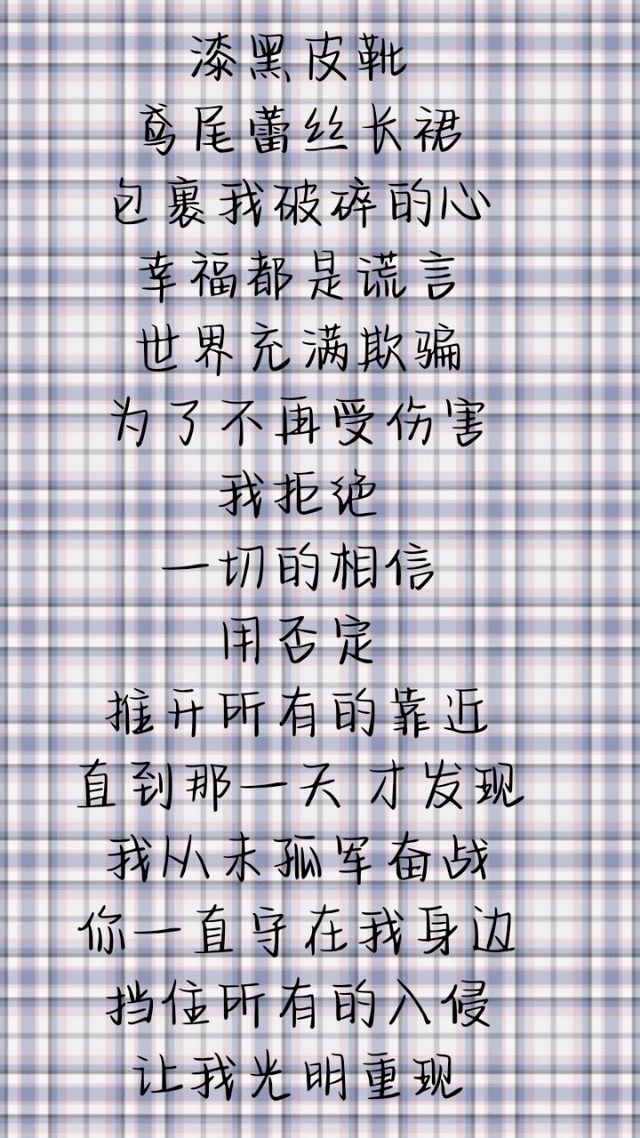 漆黑皮靴
鸢尾蕾丝长裙
包裹我破碎的心
幸福都是谎言
世界充满欺骗
为了不再受伤害
我拒绝
一切的相信
用否定
推开所有的靠近
直到那一天 才发现
我从未孤军奋战
你一直守在我身边
挡住所有的入侵
让我光明重现